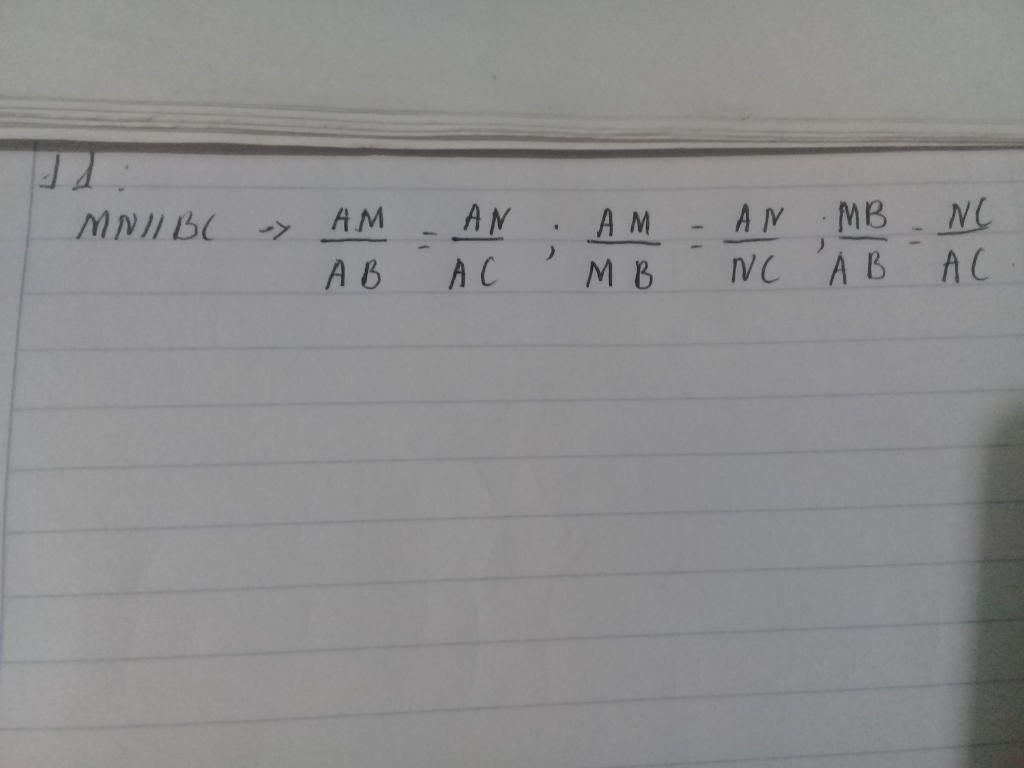 11:
MN//BC -> AM/AB = AN/AC ; AM/MB = AN/NC ; MB/AB = NC/AC.